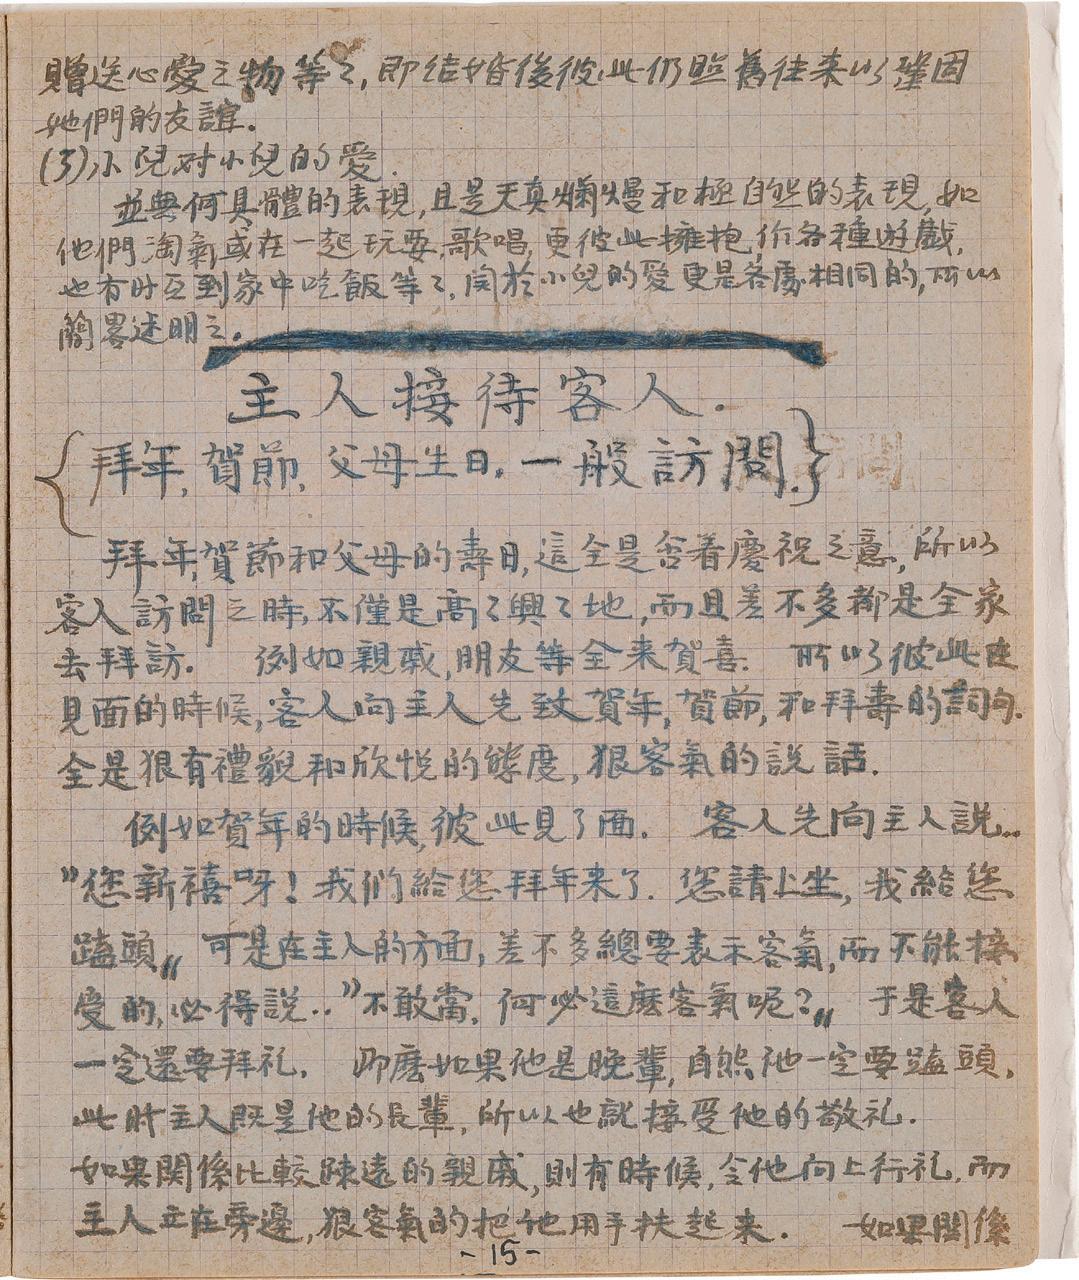 贈送心愛之物等々,即结婚後彼此仍照舊往来以鞏固
她們的友誼.
(3)小兒对小兒的愛.
並無何具體的表現,且是天真爛熳和極自然的表現,如
他們淘氣或在一起玩耍,歌唱,更彼此擁抱,作各種遊戲,
也有时互到家中吃飯等々,関於小兒的愛更是各處相同的,所以
簡畧述明之.
主人接待客人.
{拜年,賀節,父母生日,一般訪問.}
拜年,賀節和父母的壽日,這全是含着慶祝之意,所以
客人訪問之時,不僅是高々興々地,而且差不多都是全家
去拜訪. 例如親戚,朋友等全来賀喜. 所以彼此
見面的時候,客人向主人先致賀年,賀節,和拜壽的詞句.
全是狠有禮貌和欣悦的態度,狠客氣的説話.
例如賀年的時候,彼此見了面. 客人先向主人説..
"您新禧呀!我们給您拜年来了. 您請上坐,我給您
蹣頭„ 可是在主人的方面,差不多總要表示客氣,而不能接
受的,必得説.."不敢當,何必這麽客氣呢?„ 于是客人
一定還要拜礼. 那麽如果他是晚輩,自然他一定要蹣頭,
此时主人既是他的長輩,所以也就接受他的敬礼.
如果関係比較踈遠的親戚,則有時候,令他向上行礼,而
主人立在旁邊,狠客氣的把他用手扶起来. 如果関係
-15-